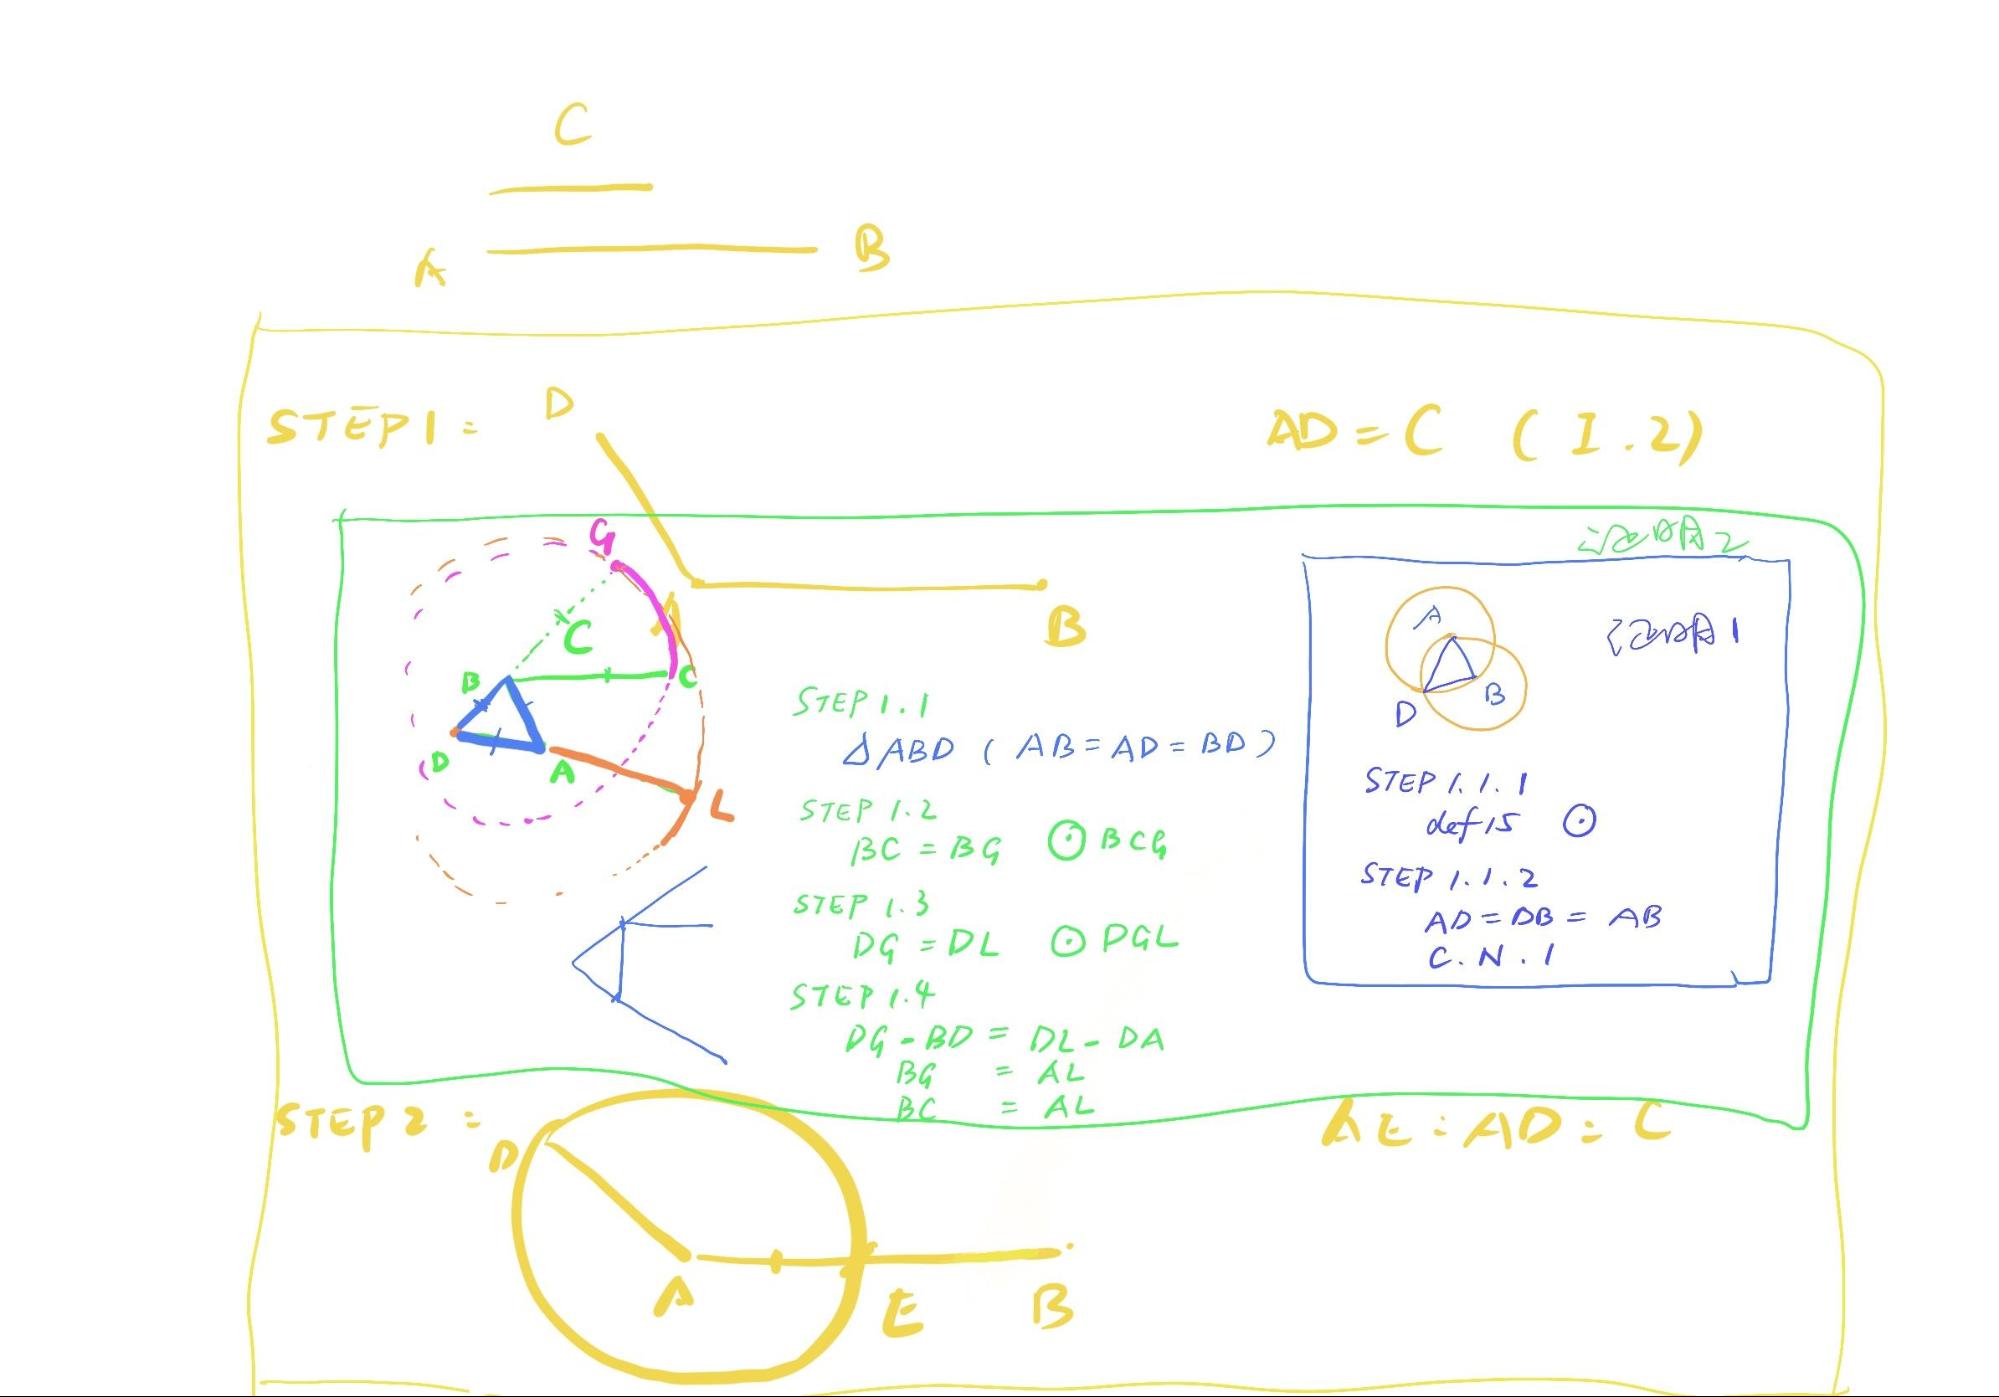 C
A B
STEP 1 : D
AD = C ( I . 2 )
G
A
B
C
B
C
D
A
L
STEP 1.1
△ABD ( AB = AD = BD )
STEP 1.2
BC = BG ⊙ BCG
STEP 1.3
DG = DL ⊙ DGL
STEP 1.4
DG - BD = DL - DA
BG = AL
BC = AL
2
A
B
D
1
STEP 1.1.1
def 15 ⊙
STEP 1.1.2
AD = DB = AB
C.N.1
STEP 2 :
AE = AD = C
D
A
E
B